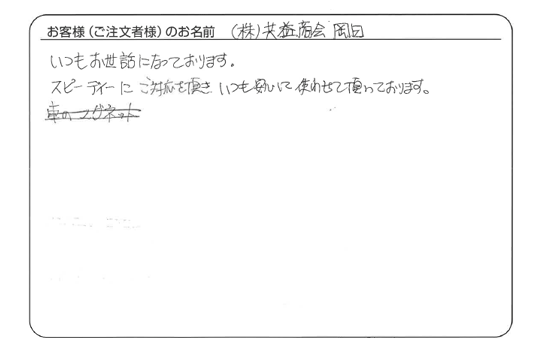 お客様（ご注文者様）のお名前 （株）共益商会 岡田
いつもお世話になっております。
スピーディーに ご対応を頂き いつも 使わせて頂っております。
車のマグネット